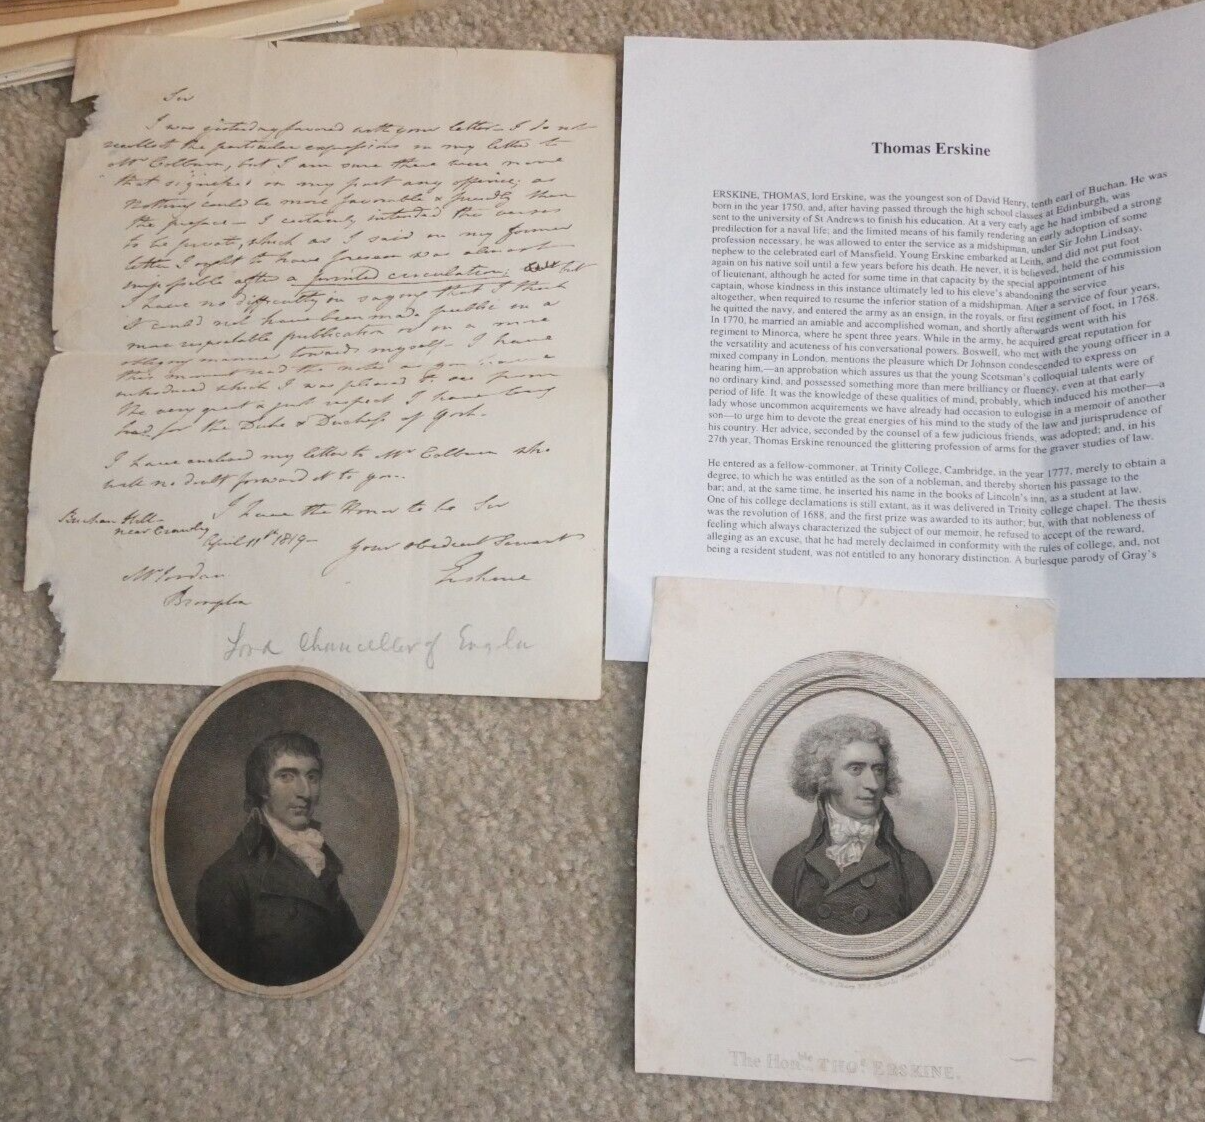 Sir
I was yesterday favored with your letter - I do not
recollect the particular expressions in my letter to
Mr Colburn, but I am sure there were none
that signified on my part any offence; as
nothing could be more favorable & friendly than
the preface - I certainly intended the verses
to be private, which as I said in my former
letter I ought to have foreseen was almost
impossible after a printed circulation; but
I have no difficulty in saying that I think
it could not have been made public in a
more respectable publication or in a more
manner towards myself - I have
this moment read the notes as you have
introduced which I was pleased to see from
the very great & just respect I have long
had for the Duke & Duchess of York.
I have enclosed my letter to Mr Colburn who
will no doubt forward it to you.
I have the Honor to be Sir
Buchan Hill
near Crawley
April 11th 1819 -
Your obedient Servant
Erskine
Mr Jerdan
Brompton
Lord Chancellor of
Thomas Erskine
ERSKINE, THOMAS, lord Erskine, was the youngest son of David Henry, tenth earl of Buchan. He was
born in the year 1750, and, after having passed through the high school classes at Edinburgh, was
sent to the university of St Andrews to finish his education. At a very early age he had imbibed a strong
predilection for a naval life; and the limited means of his family rendering an early adoption of some
profession necessary, he was allowed to enter the service as a midshipman, under Sir John Lindsay,
nephew to the celebrated earl of Mansfield. Young Erskine embarked at Leith, and did not put foot
again on his native soil until a few years before his death. He never, it is believed, held the commission
of lieutenant, although he acted for some time in that capacity by the special appointment of his
captain, whose kindness in this instance ultimately led to his eleve's abandoning the service
altogether, when required to resume the inferior station of a midshipman. After a service of four years,
he quitted the navy, and entered the army as an ensign, in the royals, or first regiment of foot, in 1768.
In 1770, he married an amiable and accomplished woman, and shortly afterwards went with his
regiment to Minorca, where he spent three years. While in the army, he acquired great reputation for
the versatility and acuteness of his conversational powers. Boswell, who met with the young officer in a
mixed company in London, mentions the pleasure which Dr Johnson condescended to express on
hearing him,—an approbation which assures us that the young Scotsman's colloquial talents were of
no ordinary kind, and possessed something more than mere brilliancy or fluency, even at that early
period of life. It was the knowledge of these qualities of mind, probably, which induced his mother—a
lady whose uncommon acquirements we have already had occasion to eulogise in a memoir of another
son—to urge him to devote the great energies of his mind to the study of the law and jurisprudence of
his country. Her advice, seconded by the counsel of a few judicious friends, was adopted; and, in his
27th year, Thomas Erskine renounced the glittering profession of arms for the graver studies of law.
He entered as a fellow-commoner, at Trinity College, Cambridge, in the year 1777, merely to obtain a
degree, to which he was entitled as the son of a nobleman, and thereby shorten his passage to the
bar; and, at the same time, he inserted his name in the books of Lincoln's inn, as a student at law.
One of his college declamations is still extant, as it was delivered in Trinity college chapel. The thesis
was the revolution of 1688, and the first prize was awarded to its author; but, with that nobleness of
feeling which always characterized the subject of our memoir, he refused to accept of the reward,
alleging as an excuse, that he had merely declaimed in conformity with the rules of college, and, not
being a resident student, was not entitled to any honorary distinction. A burlesque parody of Gray's
The Honble. THOs. ERSKINE.